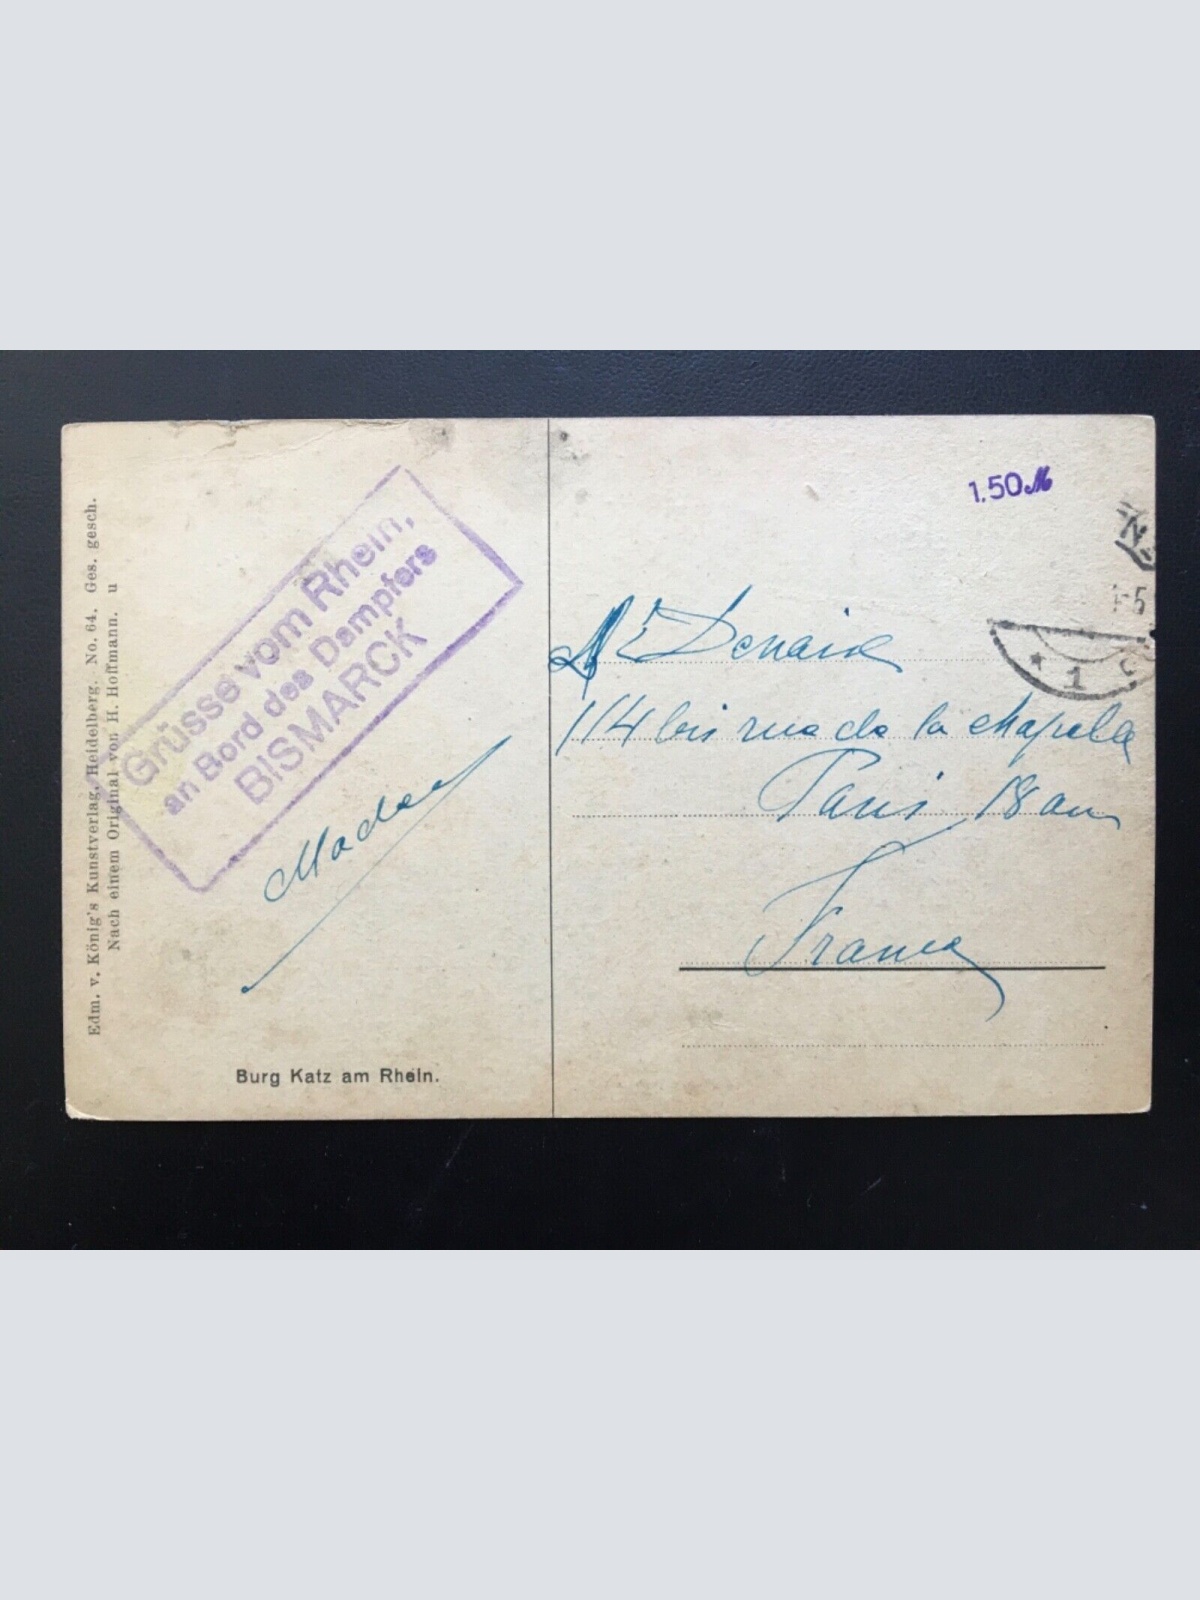 Edm. v. König's Kunstverlag, Heidelberg. No. 64. Ges. gesch.
Nach einem Original von H. Hoffmann. u
Grüsse vom Rhein,
an Bord des Dampfers
BISMARCK
Burg Katz am Rhein.
1.50 M
1
Mr Denaire
114 bis rue de la chapelle
Paris 18 am
France